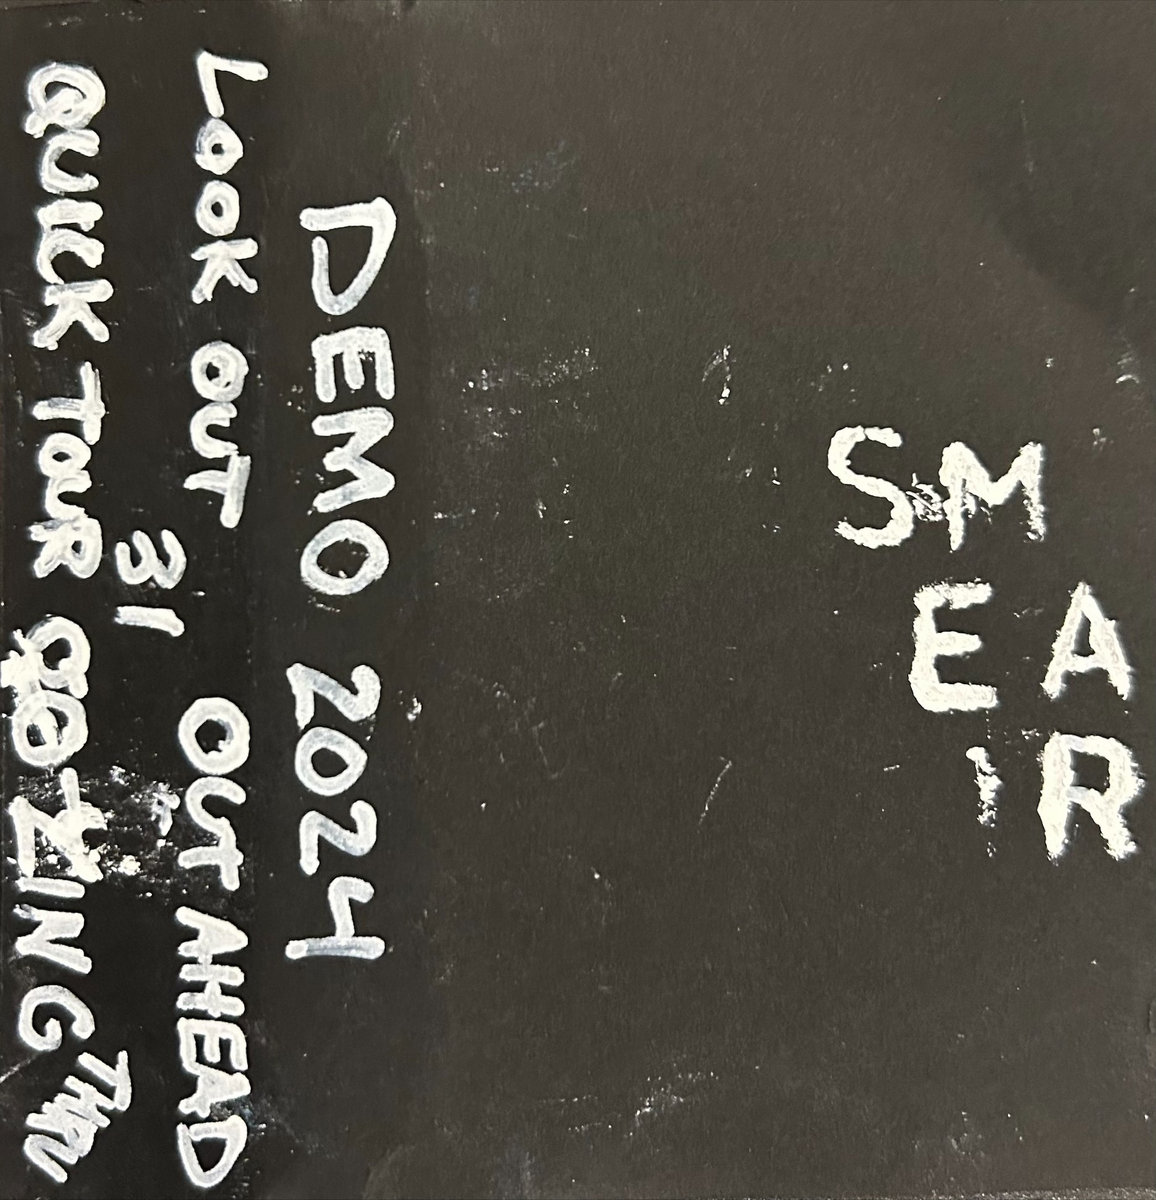 SM
EA
IR
DEMO 2024
LOOK OUT OUT AHEAD
31
QUICK TOUR THRU